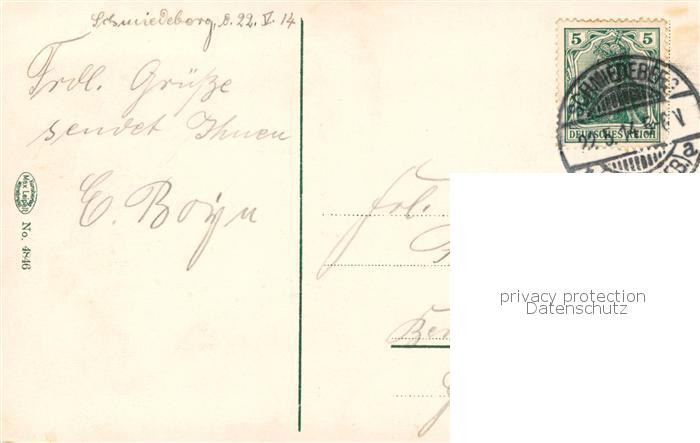 Schmiedeberg, d. 22. V. 14
Frdl. Grüße
sendet Ihnen
E. Boyn
Frl.
No. 4846
5 5
DEUTSCHES REICH
SCHMIEDEBERG
22.5.14
V
a
privacy protection
Datenschutz